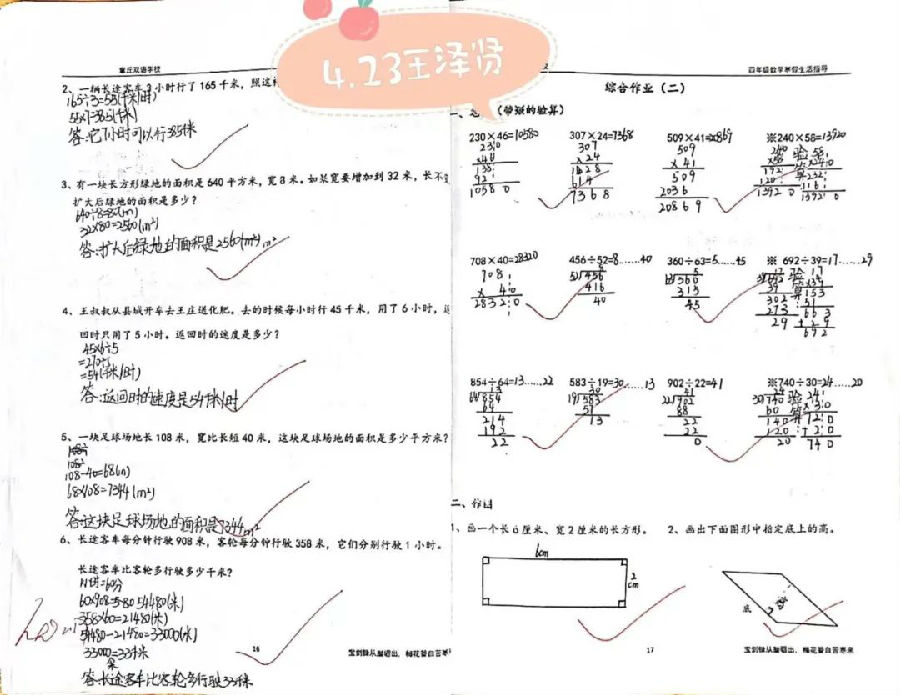 4.23王泽贤
章丘双语学校
2、一辆长途客车3小时行了165千米，照这
165÷3=55(千米/时)
55×7=385(千米)
答:它7小时可以行385千米
3、有一块长方形绿地的面积是640平方米，宽8米。如果宽要增加到32米，长不变
扩大后绿地的面积是多少？
640÷8=80(m)
32×80=2560(m²)
答:扩大后绿地的面积是2560(m²)
4、王叔叔从县城开车去王庄送化肥。去的时候每小时行45千米，用了6小时，返
回时只用了5小时。返回时的速度是多少？
45×6÷5
=270÷5
=54(千米/时)
答:返回时的速度是54千米/时
5、一块足球场地长108米，宽比长短40米，这块足球场地的面积是多少平方米？
108-40=68(m)
68×108=7344(m²)
答:这块足球场地的面积是7344m²
6、长途客车每分钟行驶908米，客轮每分钟行驶358米，它们分别行驶1小时。
长途客车比客轮多行驶多少千米？
1时=60分
60×908=54480(米)
358×60=21480(米)
54480-21480=33000(米)
33000米=33千米
答:长途客车比客轮多行驶33千米
16
宝剑锋从磨砺出，梅花香自苦寒
四年级数学寒假生活指导
综合作业（二）
（带※的验算）
230×46=10580
307×24=7368
509×41=20869
※240×58=13920
708×40=28320
456÷52=8……40
360÷63=5……45
※ 692÷39=17……29
854÷64=13……22
583÷19=30……13
902÷22=41
※740÷30=24……20
二、作图
1、画一个长6厘米、宽2厘米的长方形。
2、画出下面图形中指定底上的高。
6cm
2
cm
底
17
宝剑锋从磨砺出，梅花香自苦寒来